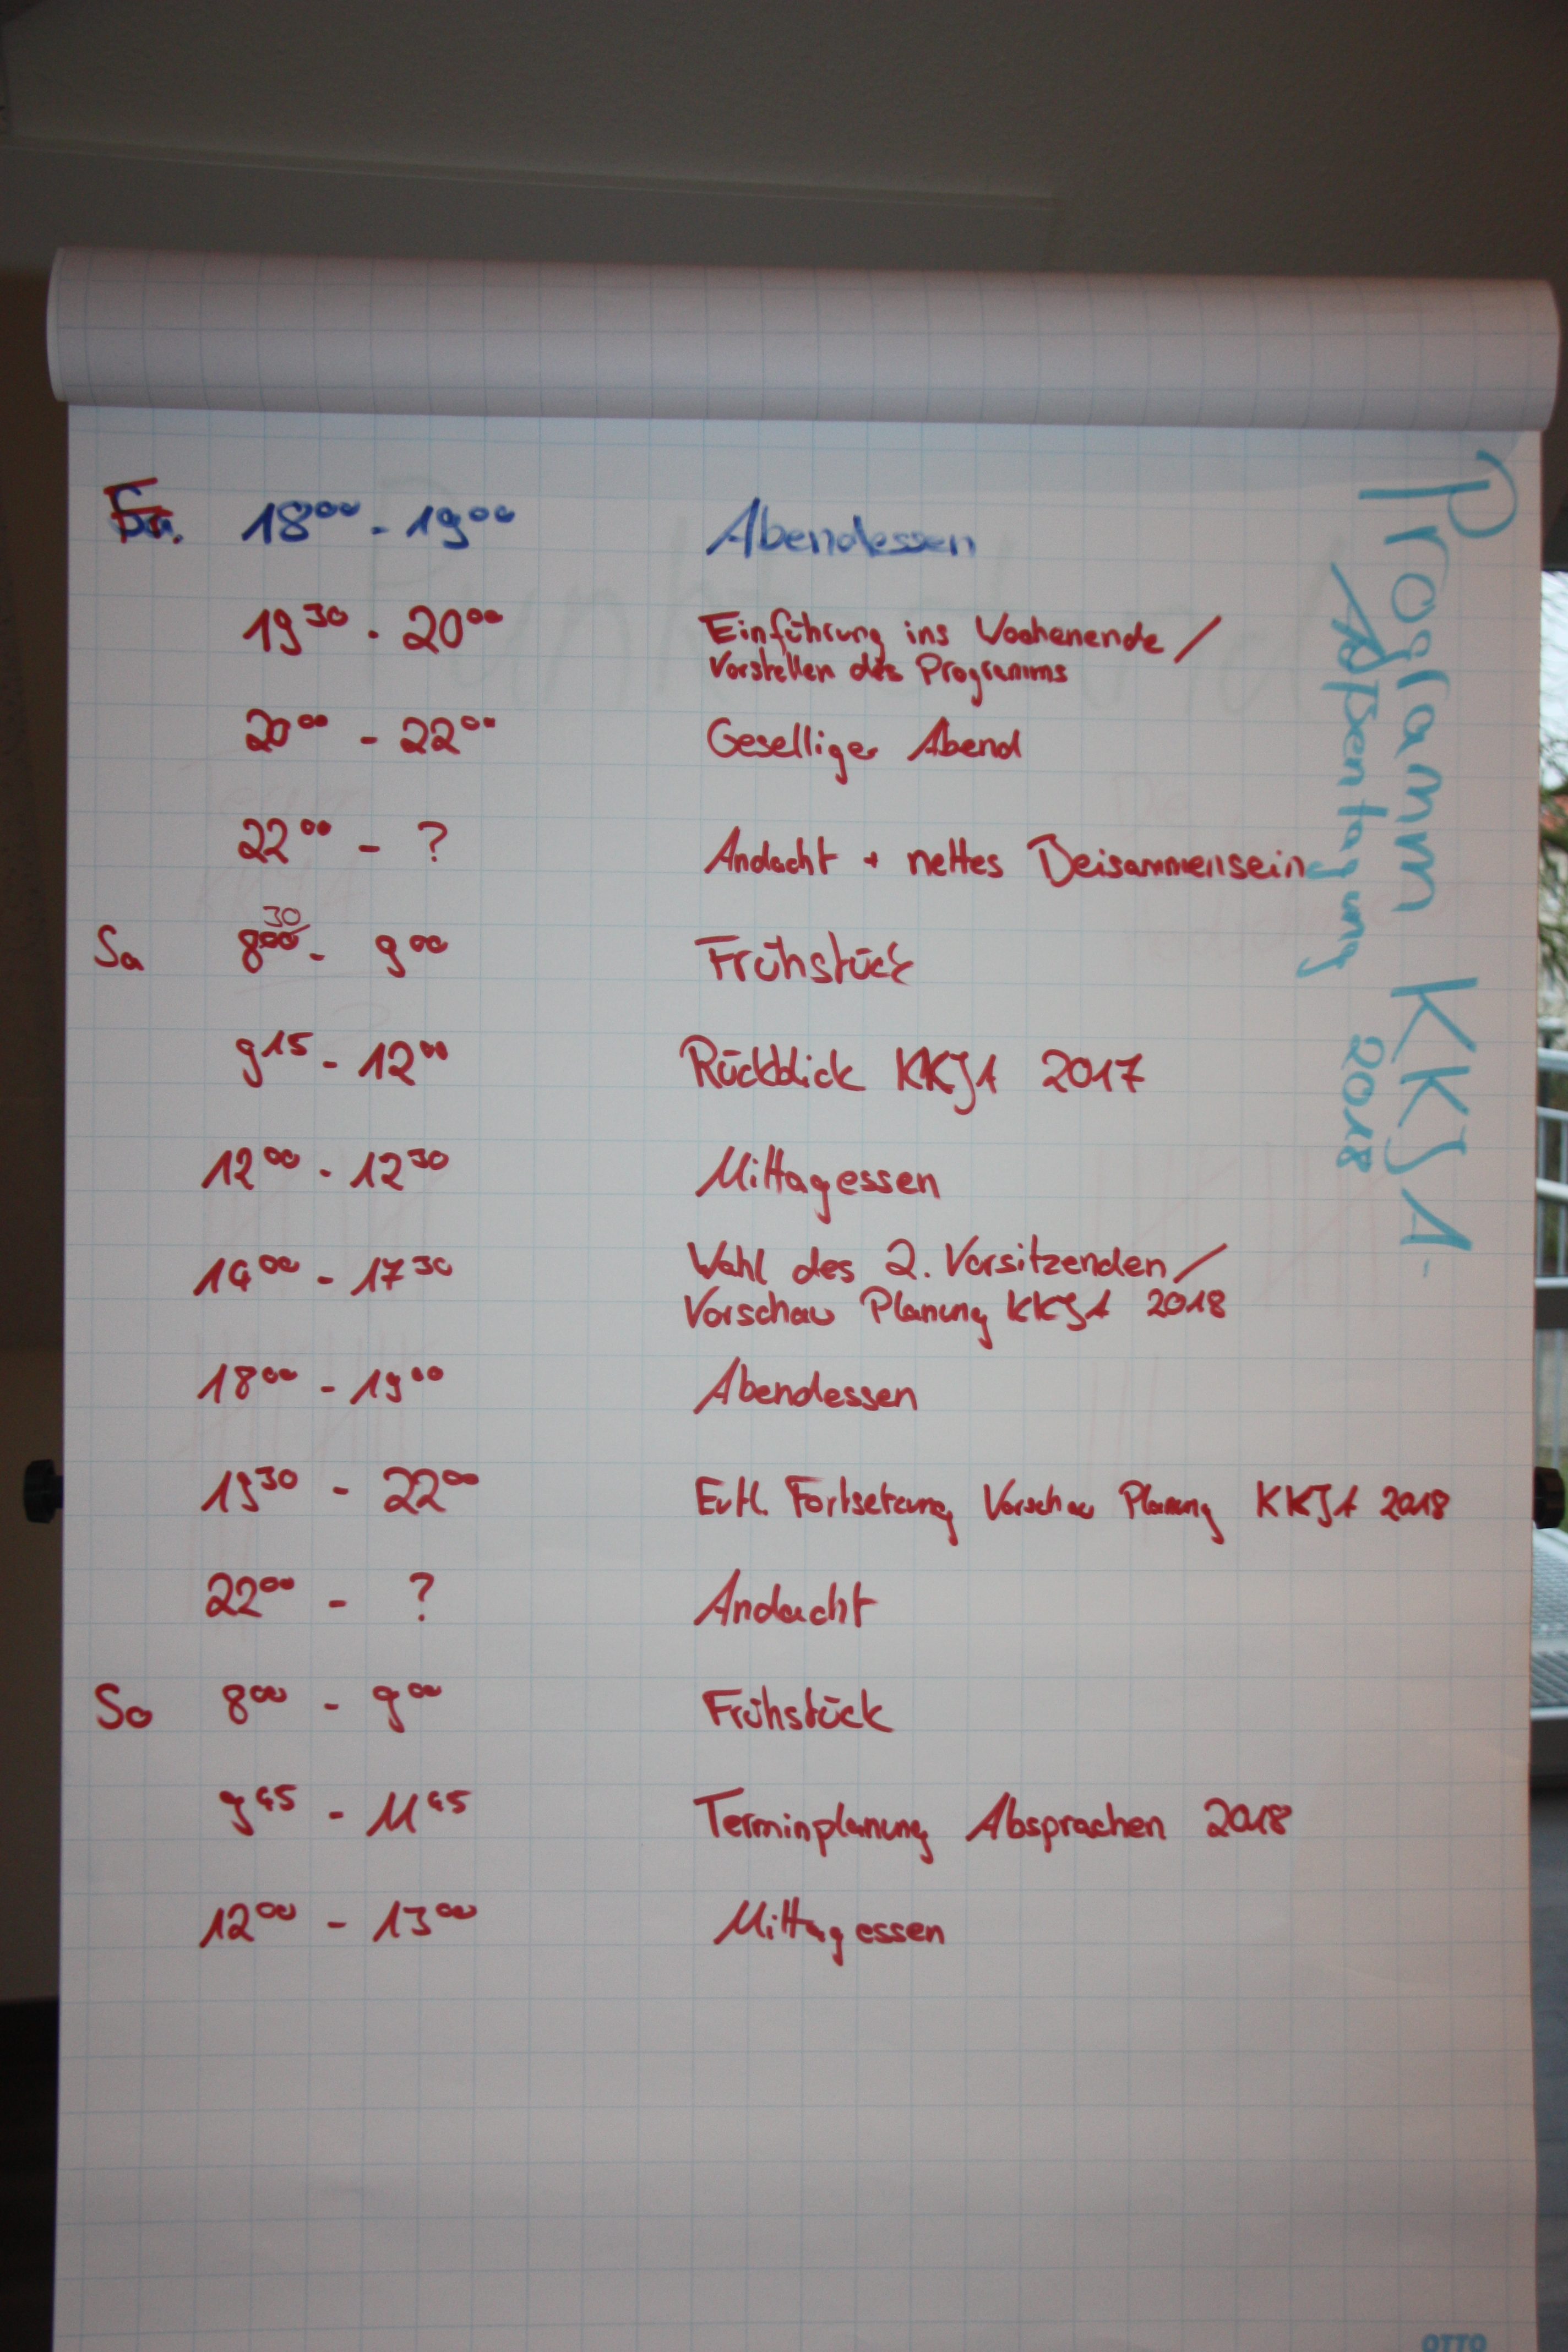 Programm KKJA-
Klausentagung 2018
Fr. 18⁰⁰ - 19⁰⁰ Abendessen
19³⁰ - 20⁰⁰ Einführung ins Wochenende /
Vorstellen des Programms
20⁰⁰ - 22⁰⁰ Geselliger Abend
22⁰⁰ - ? Andacht + nettes Beisammensein
Sa 8³⁰ - 9⁰⁰ Frühstück
9¹⁵ - 12⁰⁰ Rückblick KKJA 2017
12⁰⁰ - 12³⁰ Mittagessen
14⁰⁰ - 17³⁰ Wahl des 2. Vorsitzenden /
Vorschau Planung KKJA 2018
18⁰⁰ - 19⁰⁰ Abendessen
19³⁰ - 22⁰⁰ Evtl. Fortsetzung Vorschau Planung KKJA 2018
22⁰⁰ - ? Andacht
So 8⁰⁰ - 9⁰⁰ Frühstück
9⁴⁵ - 11⁴⁵ Terminplanung Absprachen 2018
12⁰⁰ - 13⁰⁰ Mittagessen
OTTO